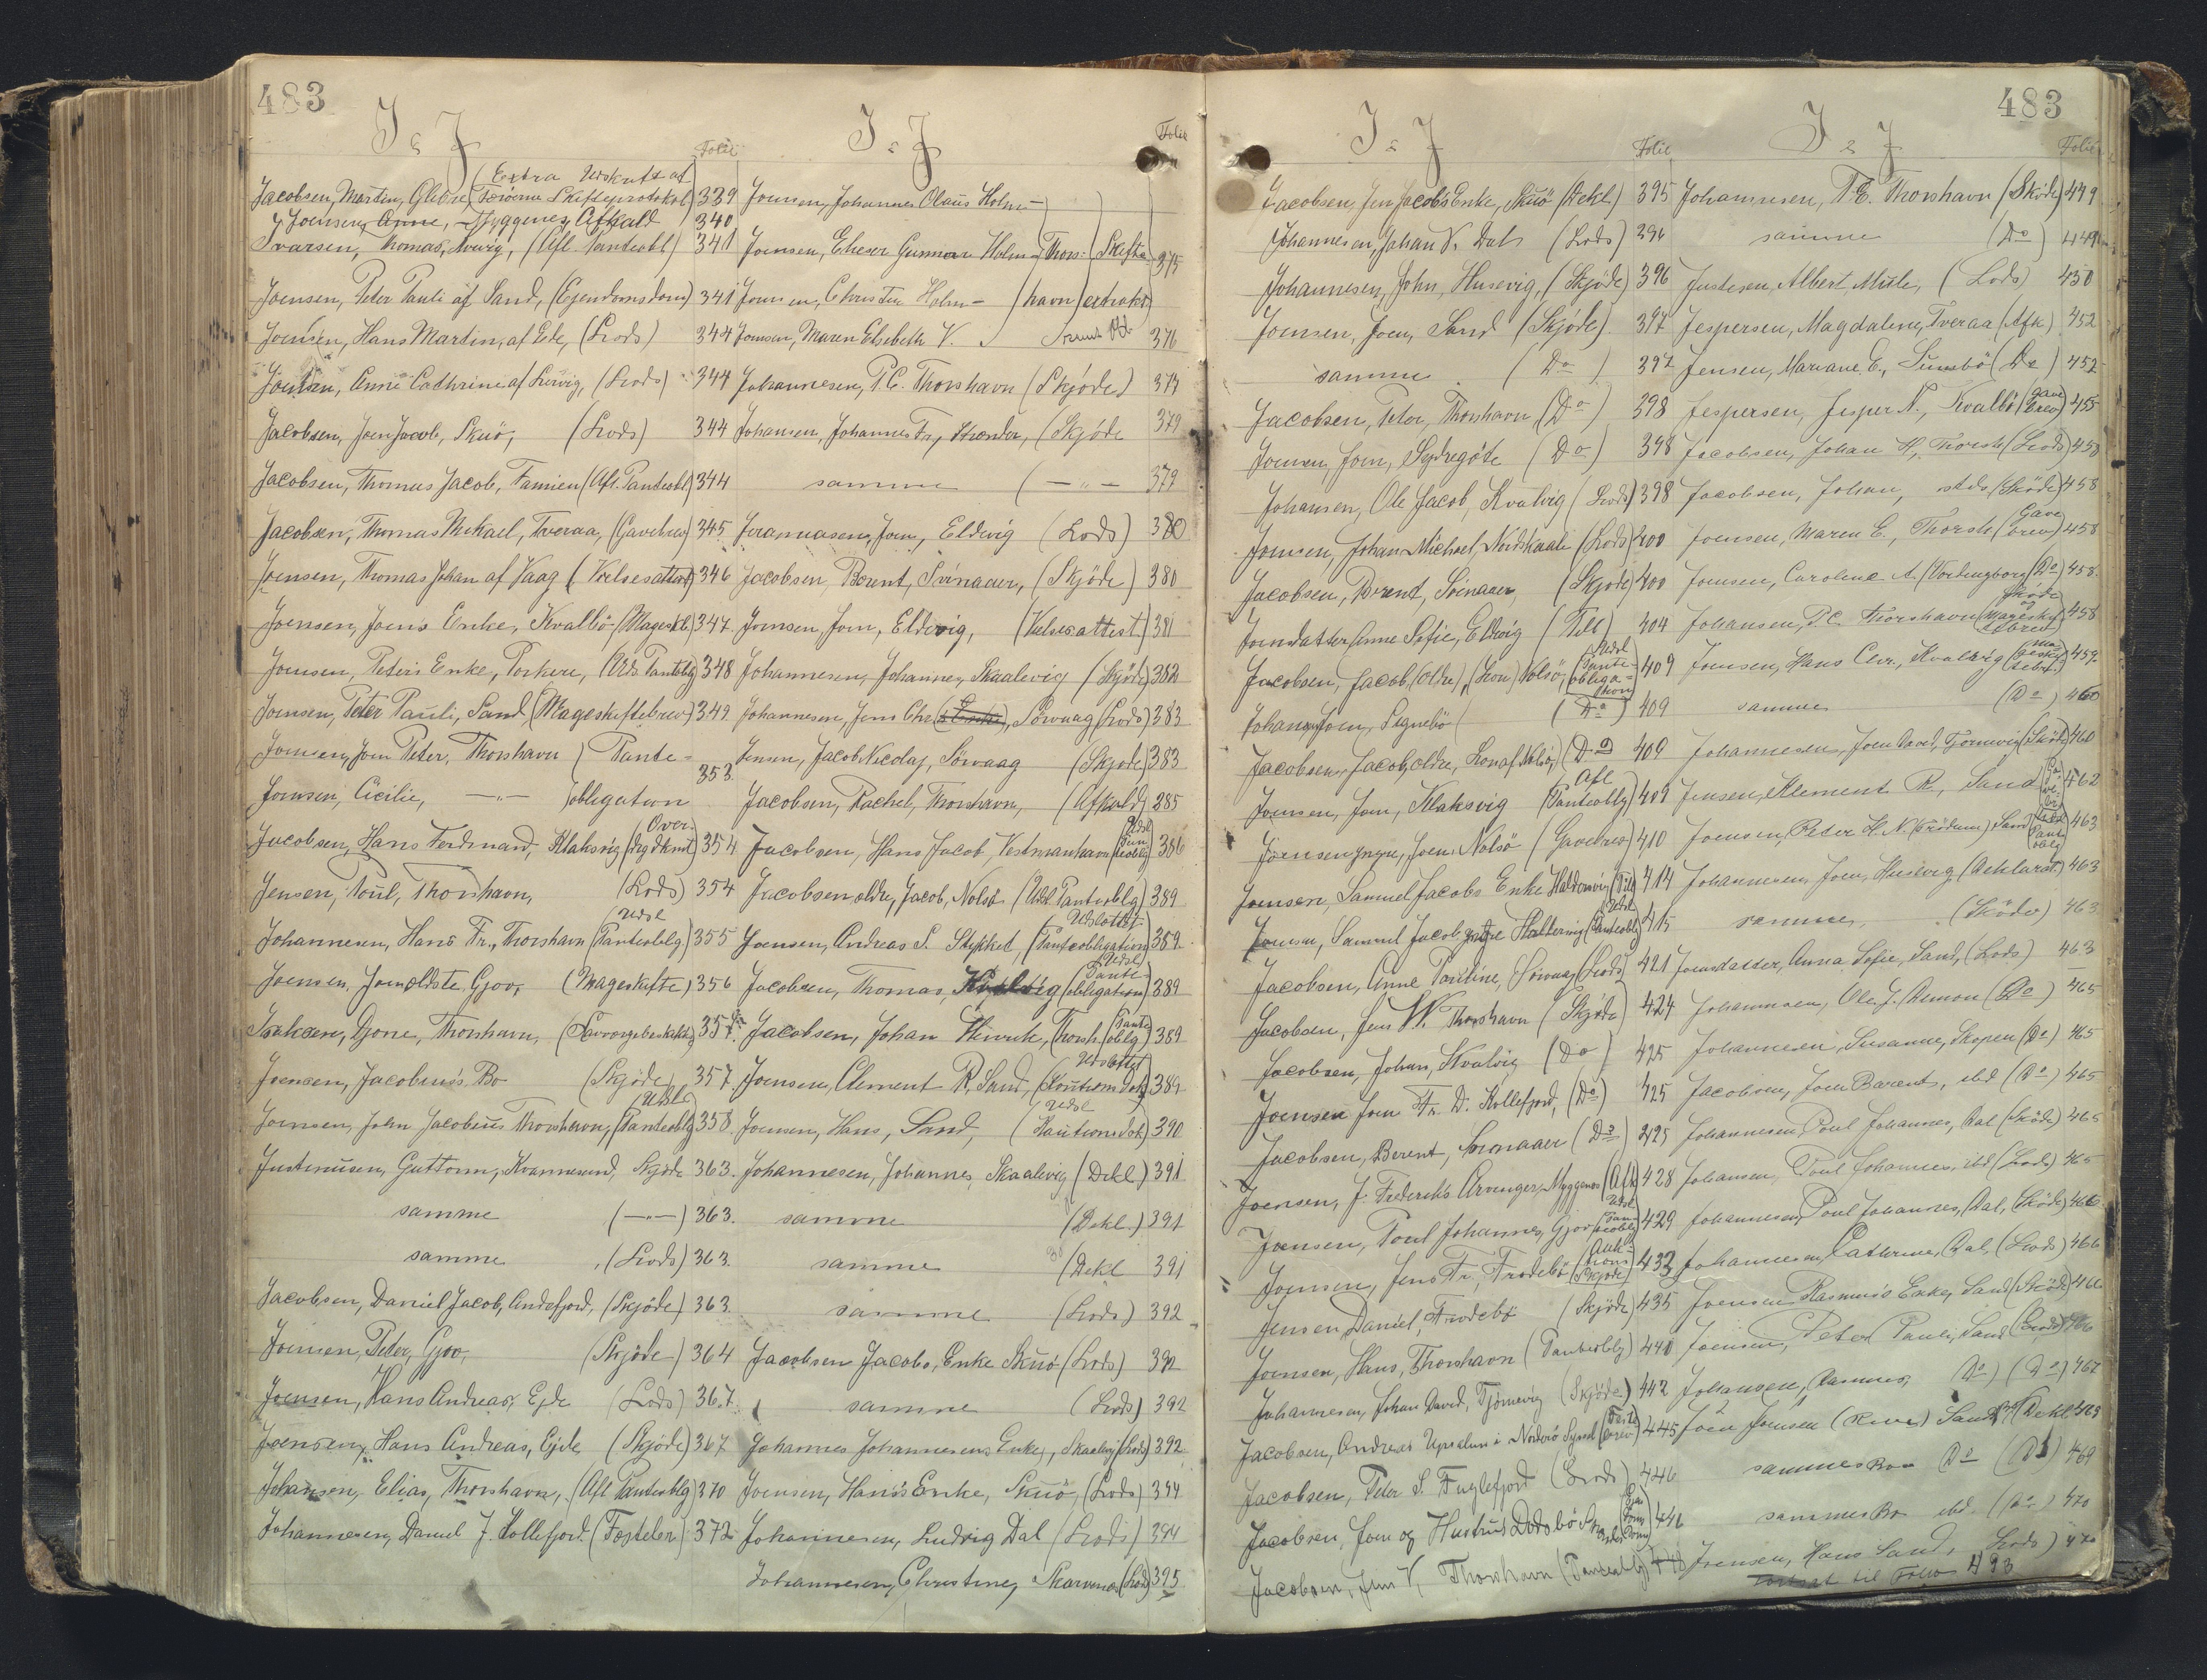 483
I & J
Folie
Jacobsen, Martin, Gletne (Extra Udskrift af Færøernes Skifteprotokol) 339
Joensen, Anne, Myggenæs, Afkald 340
Ivarsen, Thomas, (Afl. Panteobl) 341
Joensen, Peter Pauli af Sand, (Ejendomsdom) 341
Joensen, Hans Martin, af Ede, (Lods) 344
Joensen, Anne Cathrine af (Lods) 344
Jacobsen, Joen Jacob, Skuø, (Lods) 344
Jacobsen, Thomas Jacob, Famien (Afl. Panteobl) 344
Jacobsen, Thomas Mikael, Tveraa, (Gavebrev) 345
Joensen, Thomas Johan af Vaag (Vielsesattest) 346
Joensen, Joens Enke, Kvalbø (Magesk.) 347
Joensen, Peters Enke, Porkere, (Uds. Panteblg) 348
Joensen, Peter Pauli, Sand, (Mageskiftebrev) 349
Joensen, Joen Peter, Thorshavn } Pante- 353
Joensen, Cicilie, —"— } obligation
Jacobsen, Hans Ferdinand, Klaksvig 354
Jensen, Poul, Thorshavn, (Lods) 354
Johannesen, Hans Fr., Thorshavn (Udsl Panteoblg.) 355
Joensen, Joen ældste, Gjov, (Mageskifte) 356
Isaksen, Djone, Thorshavn, 357
Joensen, Jacobus's Bo (Skjøde) 357
Joensen, John Jacobus Thorshavn, (Udsl. Panteoblg) 358
Justinusen, Guttorm, Kvannesund, Skjøde 363
samme (—"—) 363.
samme (Lods) 363.
Jacobsen, Daniel Jacob, Andefjord, (Skjøde) 363.
Joensen, Peter, Gjov, (Skjøde) 364
Joensen, Hans Andreas, Ejde (Lods) 367.
Joensen, Hans Andreas, Ejde (Skjøde) 367
Johansen, Elias, Thorshavn, (Afl Panteoblg) 370
Johannesen, Daniel J. Kollefjord. (Festebr) 372
I & J
Folie
Joensen, Johannes Olaus Holm-
Joensen, Elieser Gunnar Holm- } Thors- (Skifte- 375
Joensen, Christen Holm- } havn } extrakt)
Joensen, Maren Elsebeth V. 376
Johannesen, P.C. Thorshavn (Skjøde) 377
Johansen, Johannes Fr, Strender, (Skjøde 379
samme (—"— 379
Jeremiasen, Joen, Eldevig (Lods) 380
Jacobsen, Berent, Svinaaer, (Skjøde) 380
Joensen, Joen, Eldevig, (Vielsesattest) 381
Johannesen, Johannes, Skaalevig (Skjøde) 382
Johannesen, Jens Chr, Sørvaag (Lods) 383
Jensen, Jacob Nicolaj, Sørvaag (Skjøde) 383
Jacobsen, Rachel, Thorshavn, (Afkald) 385
Jacobsen, Hans Jacob, Vestmanhavn (Udsl Panteoblg) 386
Jacobsen ældre, Jacob, Nolsø (Udsl. Panteoblg) 389
Joensen, Andreas S. (Udslettet Panteobligation) 389
Jacobsen, Thomas, (Udsl Panteobligation) 389
Jacobsen, Johan Hinrik, Thorsh. (Panteoblg) 389
Joensen, Clement R, Sand, (Udslettet Kautionsdok) 389
Joensen, Hans, Sand, (Udsl Kautionsdok) 390
Johannesen, Johannes, Skaalevig (Dekl.) 391
samme (Dekl.) 391
samme (Dekl 391
samme (Lods) 392
Jacobsen Jacobs, Enke Skuø (Lods) 392
samme (Lods) 392
Johannes Johannesens Enke, Skaalevig (Lods) 392
Joensen, Hans's Enke, Skuø, (Lods) 394
Johannesen, Ludvig Dal (Lods) 394
Johannesen, Christine, Skarvenes (Lods) 395
483
I & J
Folie
Jacobsen, Jens Jacobs Enke, Skuø (Dekl.) 395
Johannesen, Johan V. Dal (Lods) 396
Johannesen, John, Husevig, (Skjøde) 396
Joensen, Joen, Sand (Skjøde). 397
samme (Do) 397
Jacobsen, Peter, Thorshavn, (Do) 398
Joensen, Joen, Sydregøte (Do) 398
Johansen, Ole Jacob, Kvalvig (Lods) 398
Joensen, Johan Michael, Nordskaale (Lods) 400
Jacobsen, Berent, Svinaaer, (Skjøde) 400
Joensdatter, Anne Sofie, Eldevig 404
Jacobsen, Jacob (ældre), (Kvn) Nolsø, (Udsl Panteobligation) 409
Johansen, Joen, Signebø (Do) 409
Jacobsen, Jacob, ældre, Nolsø, (Do) 409
Joensen, Joen, Klaksvig (Afl Panteoblg) 409
Joensen yngre, Joen, Nolsø (Gavebrev) 410
Joensen, Samuel Jacobs Enke Haldersvig 414
Joensen, Samuel Jacob, yngre Haldersvig (Udsl Panteoblg) 415
Jacobsen, Anne Pauline, Sørvaag (Lods) 421
Jacobsen, Jens W. Thorshavn (Skjøde) 424
Jacobsen, Johan, Kvalvig (Do) 425
Joensen Joen Fr. D. Kollefjord, (Do) 425
Jacobsen, Berent, Svinaaer (Do) 425
Joensen, J. Frederiks Arvinger, Myggenæs (Afk) 428
Joensen, Poul Johannes, Gjov (Udsl Panteoblg) 429
Joensen, Jens Fr., Frodebø (Auktions Skjøde) 433
Jensen, Daniel, Frodebø (Skjøde) 435
Joensen, Hans, Thorshavn (Panteoblg) 440
Johannesen, Johan David, Tjørnevig (Skjøde) 442
Jacobsen, Andreas Upsalum i Norderø Syssel (Festebrev) 445
Jacobsen, Peter S. Fuglefjord (Lods) 446
Jacobsen, Joen og Hustrus Dødsbø 446
Jacobsen, Jens V, Thorshavn (Panteoblg)
I & J
Folie
Johannesen, P.C. Thorshavn (Skøde) 449
samme (Do) 449
Justesen, Albert Mule, (Lods) 450
Jespersen, Magdalene, Tveraa (Afk) 452
Jensen, Mariane E., Sumbø (Do) 452
Jespersen, Jesper N., Kvalbø (Gavebrev) 455
Jacobsen, Johan H., Thorsh. (Lods) 458
Jacobsen, Johan, stds (Skøde) 458
Joensen, Maren E., Thorsh (Gavebrev) 458
Joensen, Caroline A. (Vordingborg) (Do) 458.
Johansen, P.C. Thorshavn (Skøde og Mageskiftebrev) 458
Joensen, Hans Chr., Kvalvig (Mageskiftebr.) 459.
samme (Do) 460
Johannesen, Joen David, Tjørnevig (Skøde) 460
Jensen, Klement R., Sand 462
Joensen, Peter H. N. (Trödum) Sand (Udsl Panteoblg) 463
Johannesen, Joen, Husevig 463
samme (Skøde) 463
Joensdatter, Anna Sofie, Sand, (Lods) 463
Johannesen, Ole J. (Do) 465
Johannesen, Susanne, Skopen (Do) 465
Jacobsen, Joen Berent, ibd (Do) 465
Johannesen, Poul Johannes, Dal (Skøde) 465
Johansen, Poul Johannes, ibd (Lods) 465
Johannesen, Poul Johannes, Dal, (Skøde) 466
Johannesen, Catherine, Dal, (Lods) 466
Joensen Rasmus's Enke, Sand (Skøde) 466
Joensen, Peter Pauli, Sand (Lods) 466
Johansen, Rasmus, Do) (Do) 467
Joen Joensen Sand (Dekl 468
sammes Bo Do (Do) 469
sammes Bo ibd. (Do) 470
Joensen, Hans Sand, Lods) 470
Fortsat til Folio 493